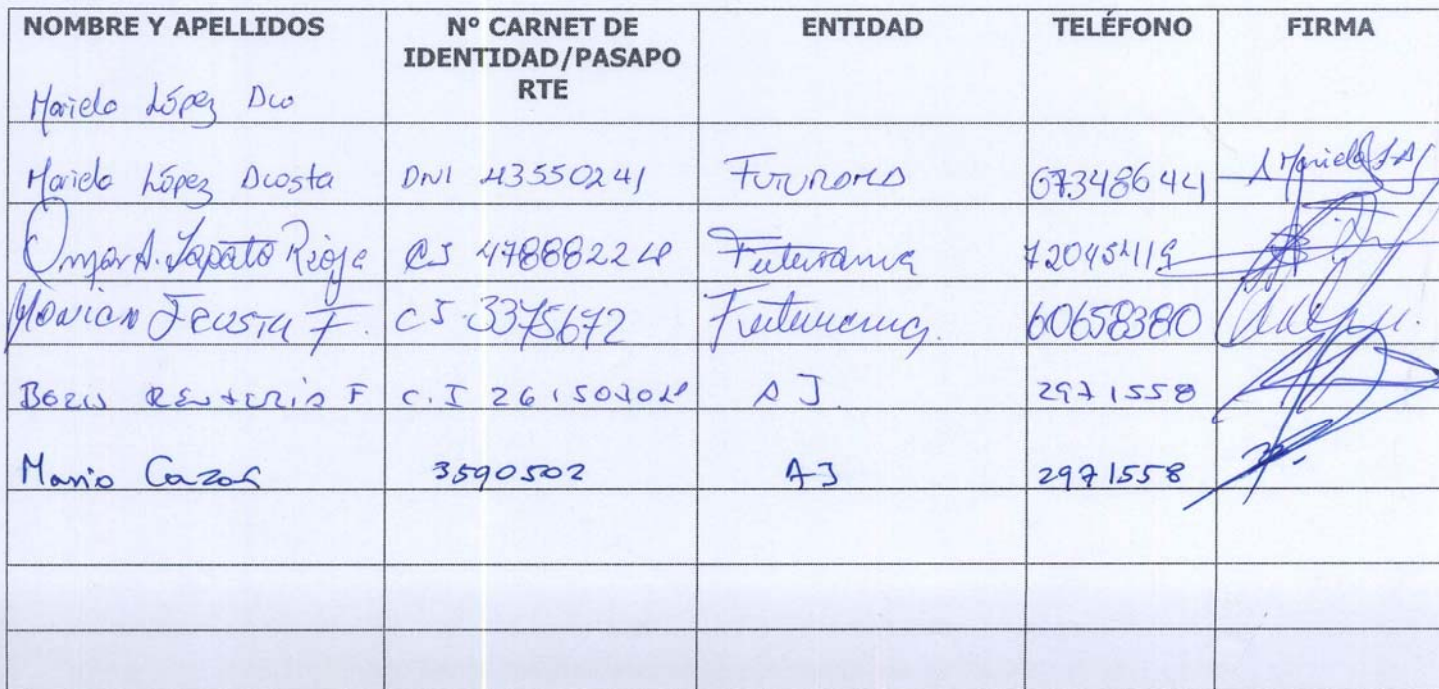 NOMBRE Y APELLIDOS Nº CARNET DE IDENTIDAD/PASAPO RTE ENTIDAD TELÉFONO FIRMA
Mariela López Aco
Mariela López Acosta DNI 43550241 FUTURAMA 67348644
Omar A. Zapata Rioja CI Futurama
F. CI 3375672 Futurama 60658380
Boris Renteria F C.I AJ 2971558
Mario Cazas 3590502 AJ 2971558